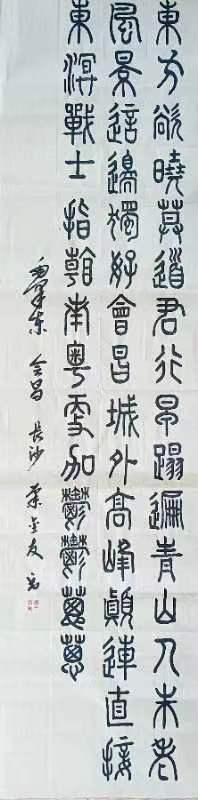 東方欲曉莫道君行早蹋遍青山人未老
風景這邊獨好會昌城外高峰顛連直接
東溟戰士指看南粵更加鬱鬱蔥蔥
毛澤東 会昌 長沙 金友